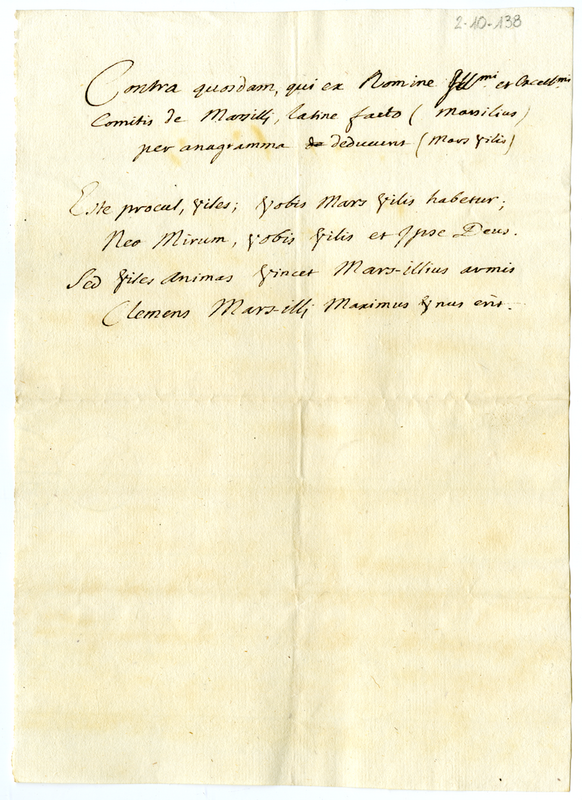 2-10-138
Contra quosdam, qui ex Nomine Illmi. et Excellmi.
Comitis de Marsilij, latine facto (Marsilius)
per anagramma deducunt (Mars Vilis)
Este procul, Viles; Vobis Mars Vilis habetur;
Nec Mirum, Vobis Vilis et Ipse Deus.
Sed Viles Animas Vincet Mars-illius armis
Clemens Mars-illi Maximus Vnus erit.